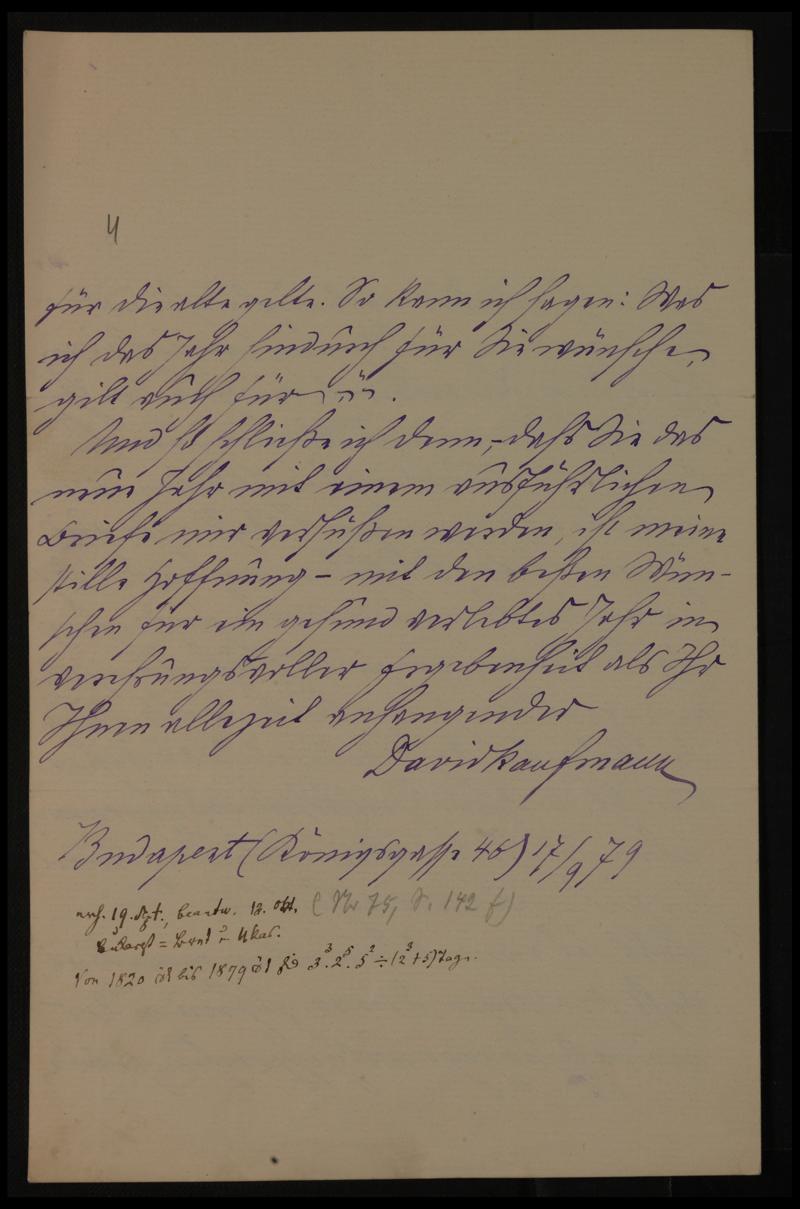 4
für die alte gelte. So kann ich sagen: Was
ich das Jahr hindurch für Sie wünsche,
gilt auch für
Und so schließe ich denn, – dass Sie das
neue Jahr mit einem ausführlichen
Briefe mir versüßen werden, ist meine
stille Hoffnung – mit den besten Wün-
schen für ein gesund verlebtes Jahr in
verehrungsvoller Ergebenheit als Ihr
Ihnen allezeit anhangender
David Kaufmann
Budapest (Königsgasse 46) 17/9 79
19. Sept., beantw. 12. Okt. (Nr 75, S. 142 f)
= Brod
Von 1820 bis 1879 3³.2⁵.5² ÷ (2³+5) Tage.